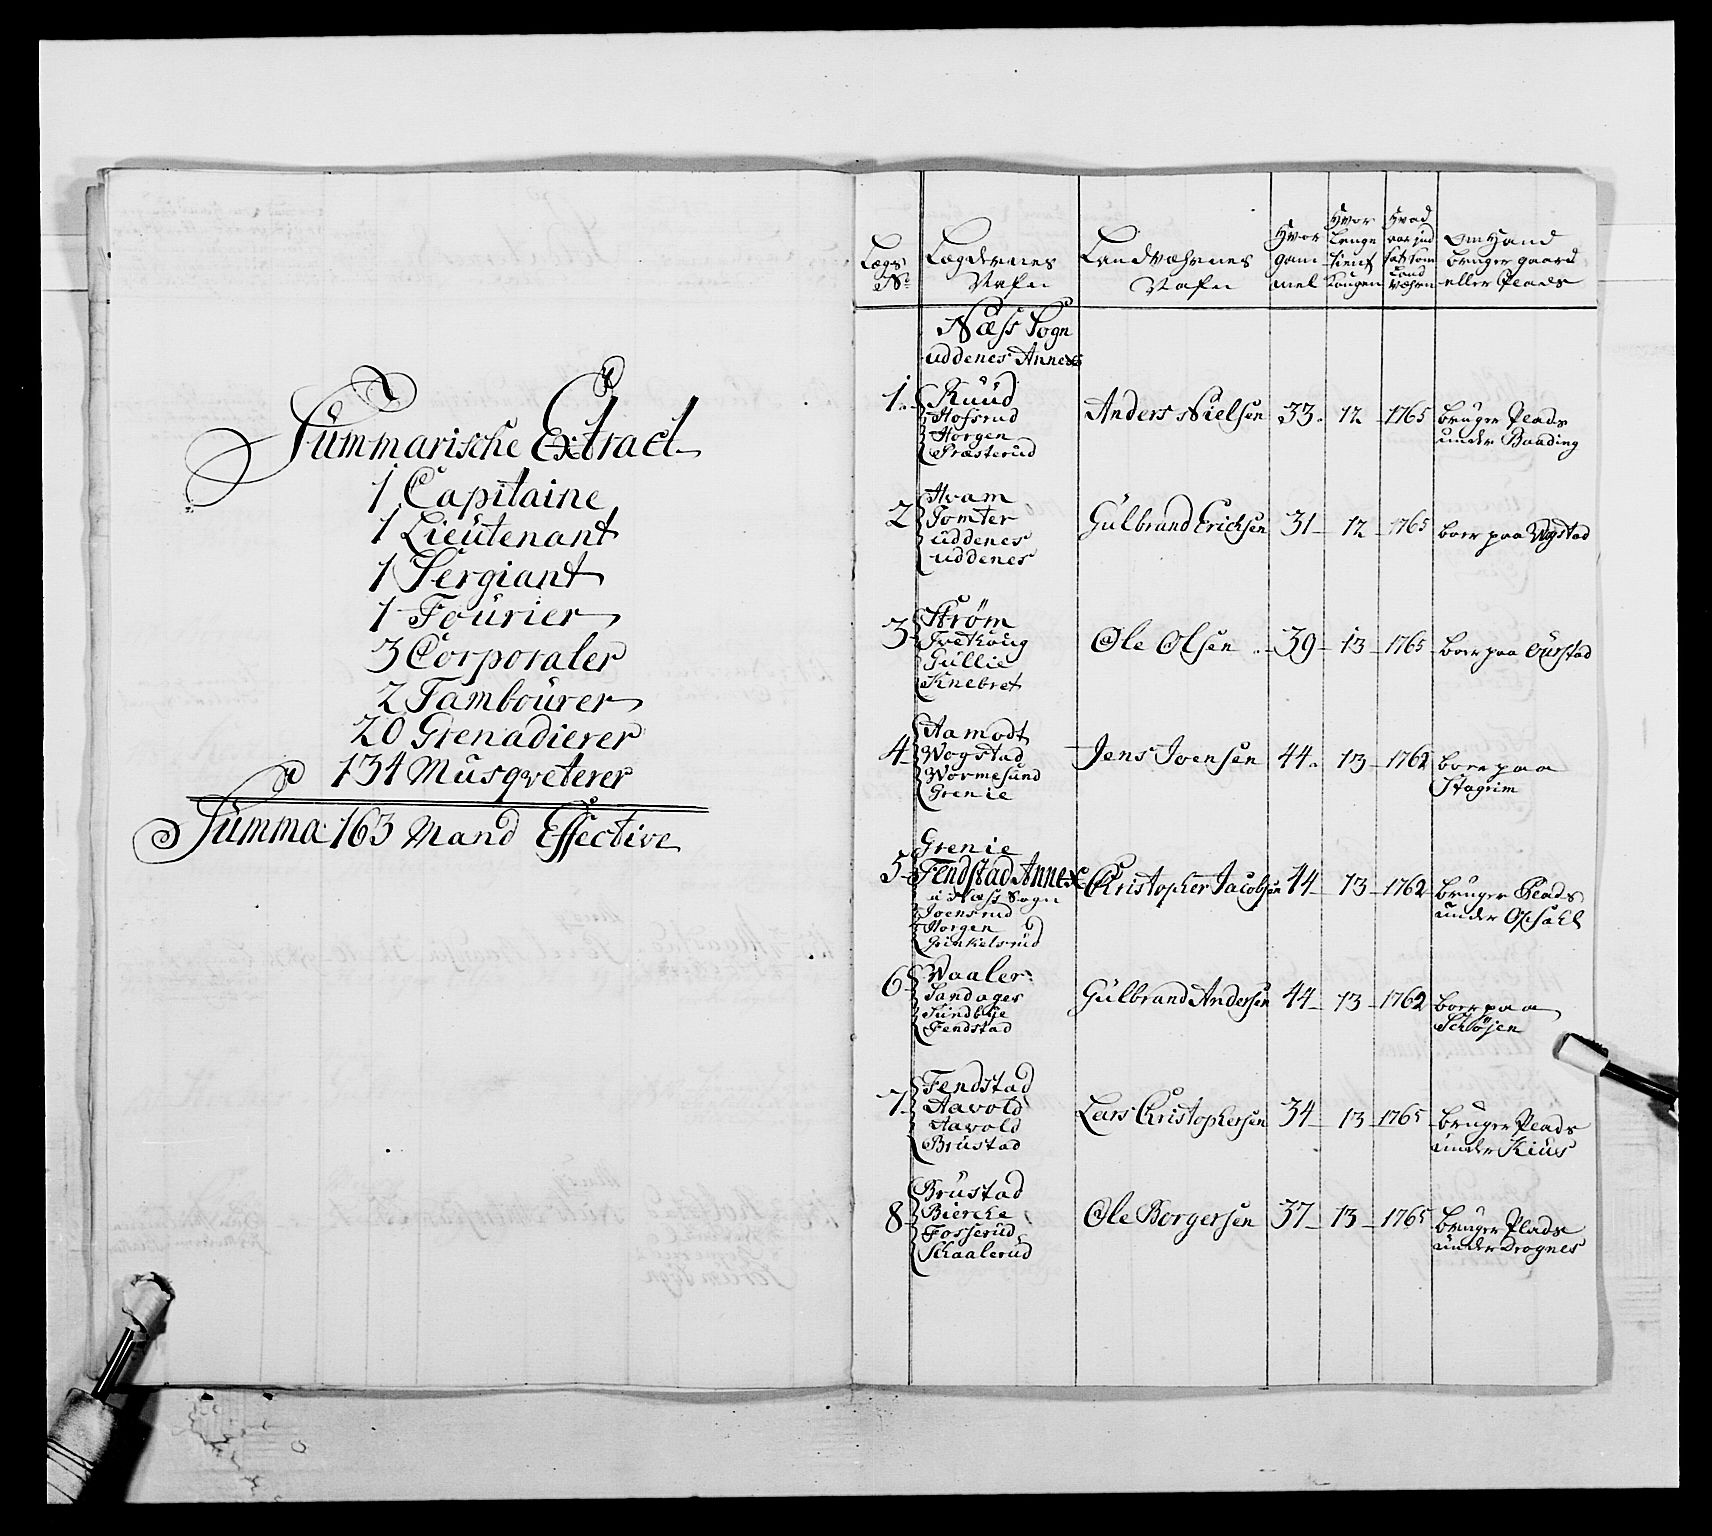 Summarische Extract
1 Capitaine
1 Lieutenant
1 Sergiant
1 Fourier
3 Corporaler
2 Tambourer
20 Grenadierer
134 Musqveterer
Summa 163 Mand Effective
Lægs No
Lægdernes Nafn
Landværnes Nafn
Hvor gam mel
Hvor lenge tient Kongen
Hvad aar ind sat som Land Væhrn
Om Hand bruger gaard eller Plads
Næss Sogn
uddenes Annex
1. Ruud Anders Nielsen 33. 12 1765 bruger Plads
Hofsrud under Baading
Horgen
Præsterud
2 Hvam Gulbrand Erichsen 31 12 1765 boer paa Wogstad
Tomter
uddenes
uddenes
3 Strøm Ole Olsen 39 13 1765 boer paa Aurstad
Tvetkoug
Gullie
Knebret
4 Aamodt Jens Ivensen 44. 13 1762 boer paa
Wogstad Stagrim
Wormesund
Grenie
5 Grenie
Fendstad Annex Christopher Jacobsen 44 13 1762 bruger Plads
i Næss Sogn under Opsahl
Ivensrud
Horgen
Grinkelsrud
6 Waaler Gulbrand Andersen 44 13 1762 boer paa
Sandager Schøjen
Sundbye
Fendstad
7 Fendstad Lars Christophersen 34 13 1765 bruger Plads
Aavold under Kius
Aavold
Brustad
8 Brustad Ole Borgersen 37 13 1765 bruger Plads
Biercke under Drognes
Fosserud
Skaalerud